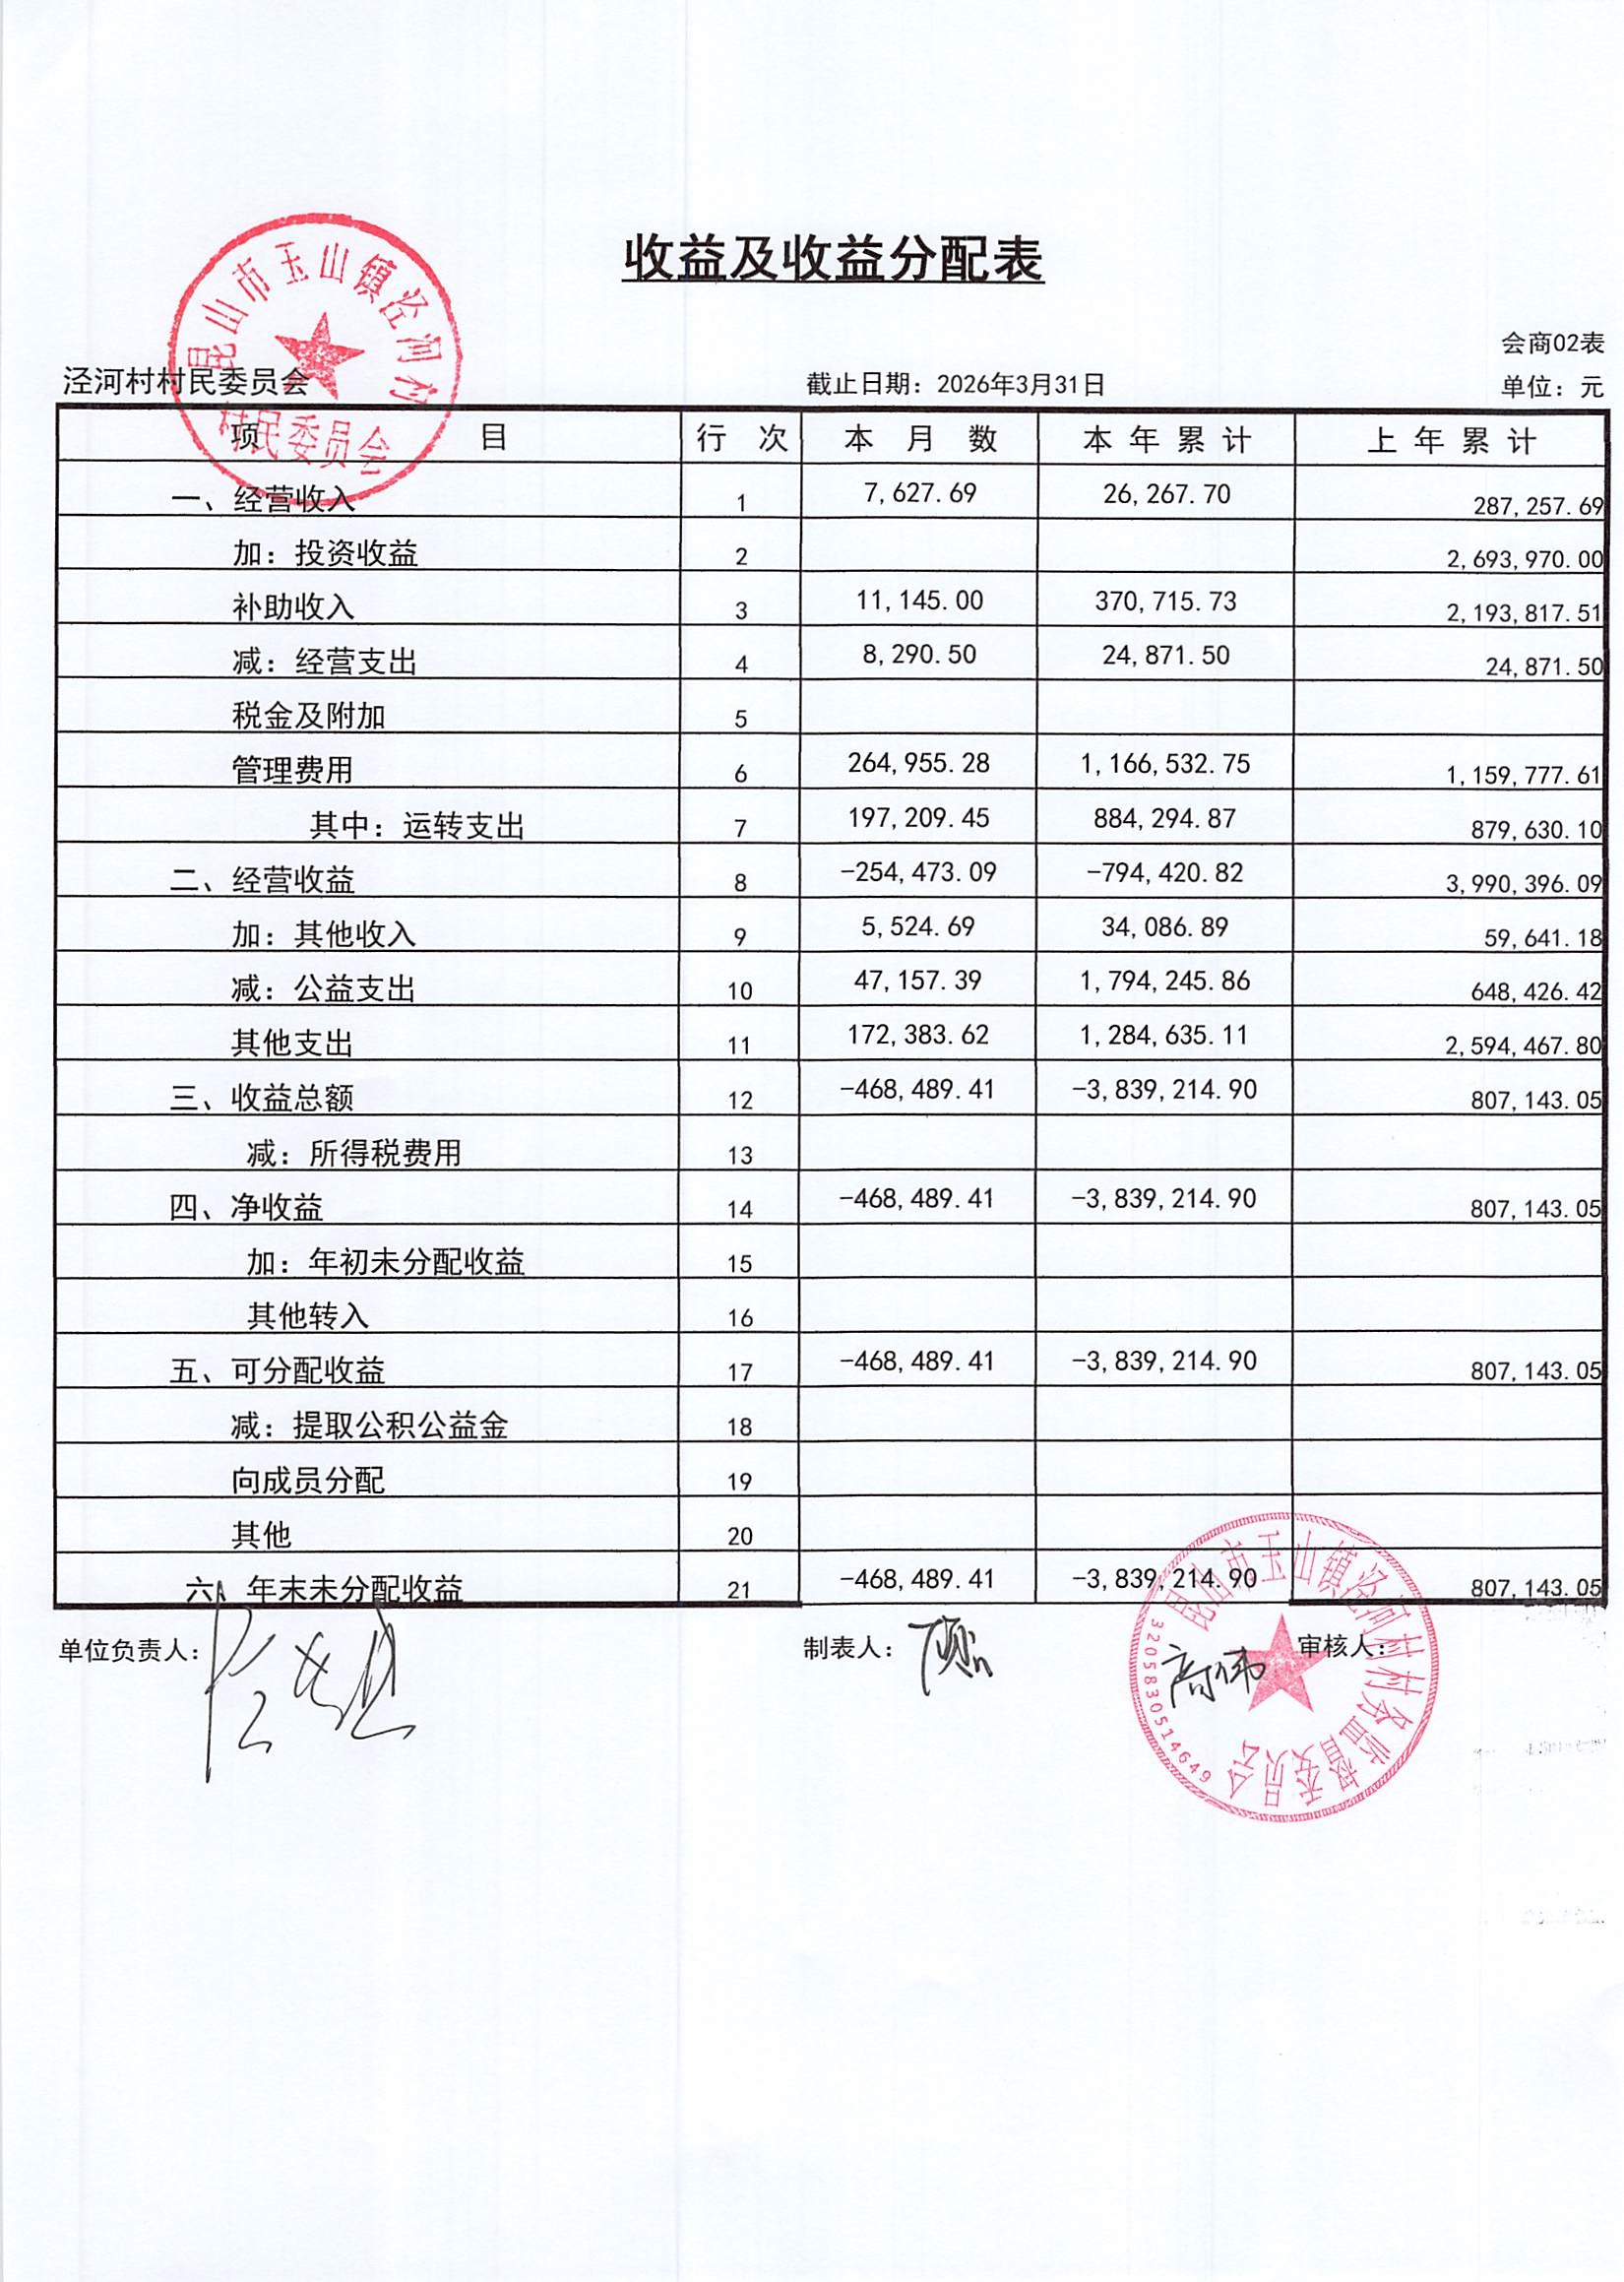 收益及收益分配表
会商02表
泾河村村民委员会 截止日期：2026年3月31日 单位：元
项 目 行 次 本 月 数 本 年 累 计 上 年 累 计
一、经营收入 1 7,627.69 26,267.70 287,257.69
加：投资收益 2 2,693,970.00
补助收入 3 11,145.00 370,715.73 2,193,817.51
减：经营支出 4 8,290.50 24,871.50 24,871.50
税金及附加 5
管理费用 6 264,955.28 1,166,532.75 1,159,777.61
其中：运转支出 7 197,209.45 884,294.87 879,630.10
二、经营收益 8 -254,473.09 -794,420.82 3,990,396.09
加：其他收入 9 5,524.69 34,086.89 59,641.18
减：公益支出 10 47,157.39 1,794,245.86 648,426.42
其他支出 11 172,383.62 1,284,635.11 2,594,467.80
三、收益总额 12 -468,489.41 -3,839,214.90 807,143.05
减：所得税费用 13
四、净收益 14 -468,489.41 -3,839,214.90 807,143.05
加：年初未分配收益 15
其他转入 16
五、可分配收益 17 -468,489.41 -3,839,214.90 807,143.05
减：提取公积公益金 18
向成员分配 19
其他 20
六、年末未分配收益 21 -468,489.41 -3,839,214.90 807,143.05
单位负责人： 制表人： 审核人：
昆山市玉山镇泾河村
村民委员会
昆山市玉山镇泾河村村务监督委员会
3205830514649